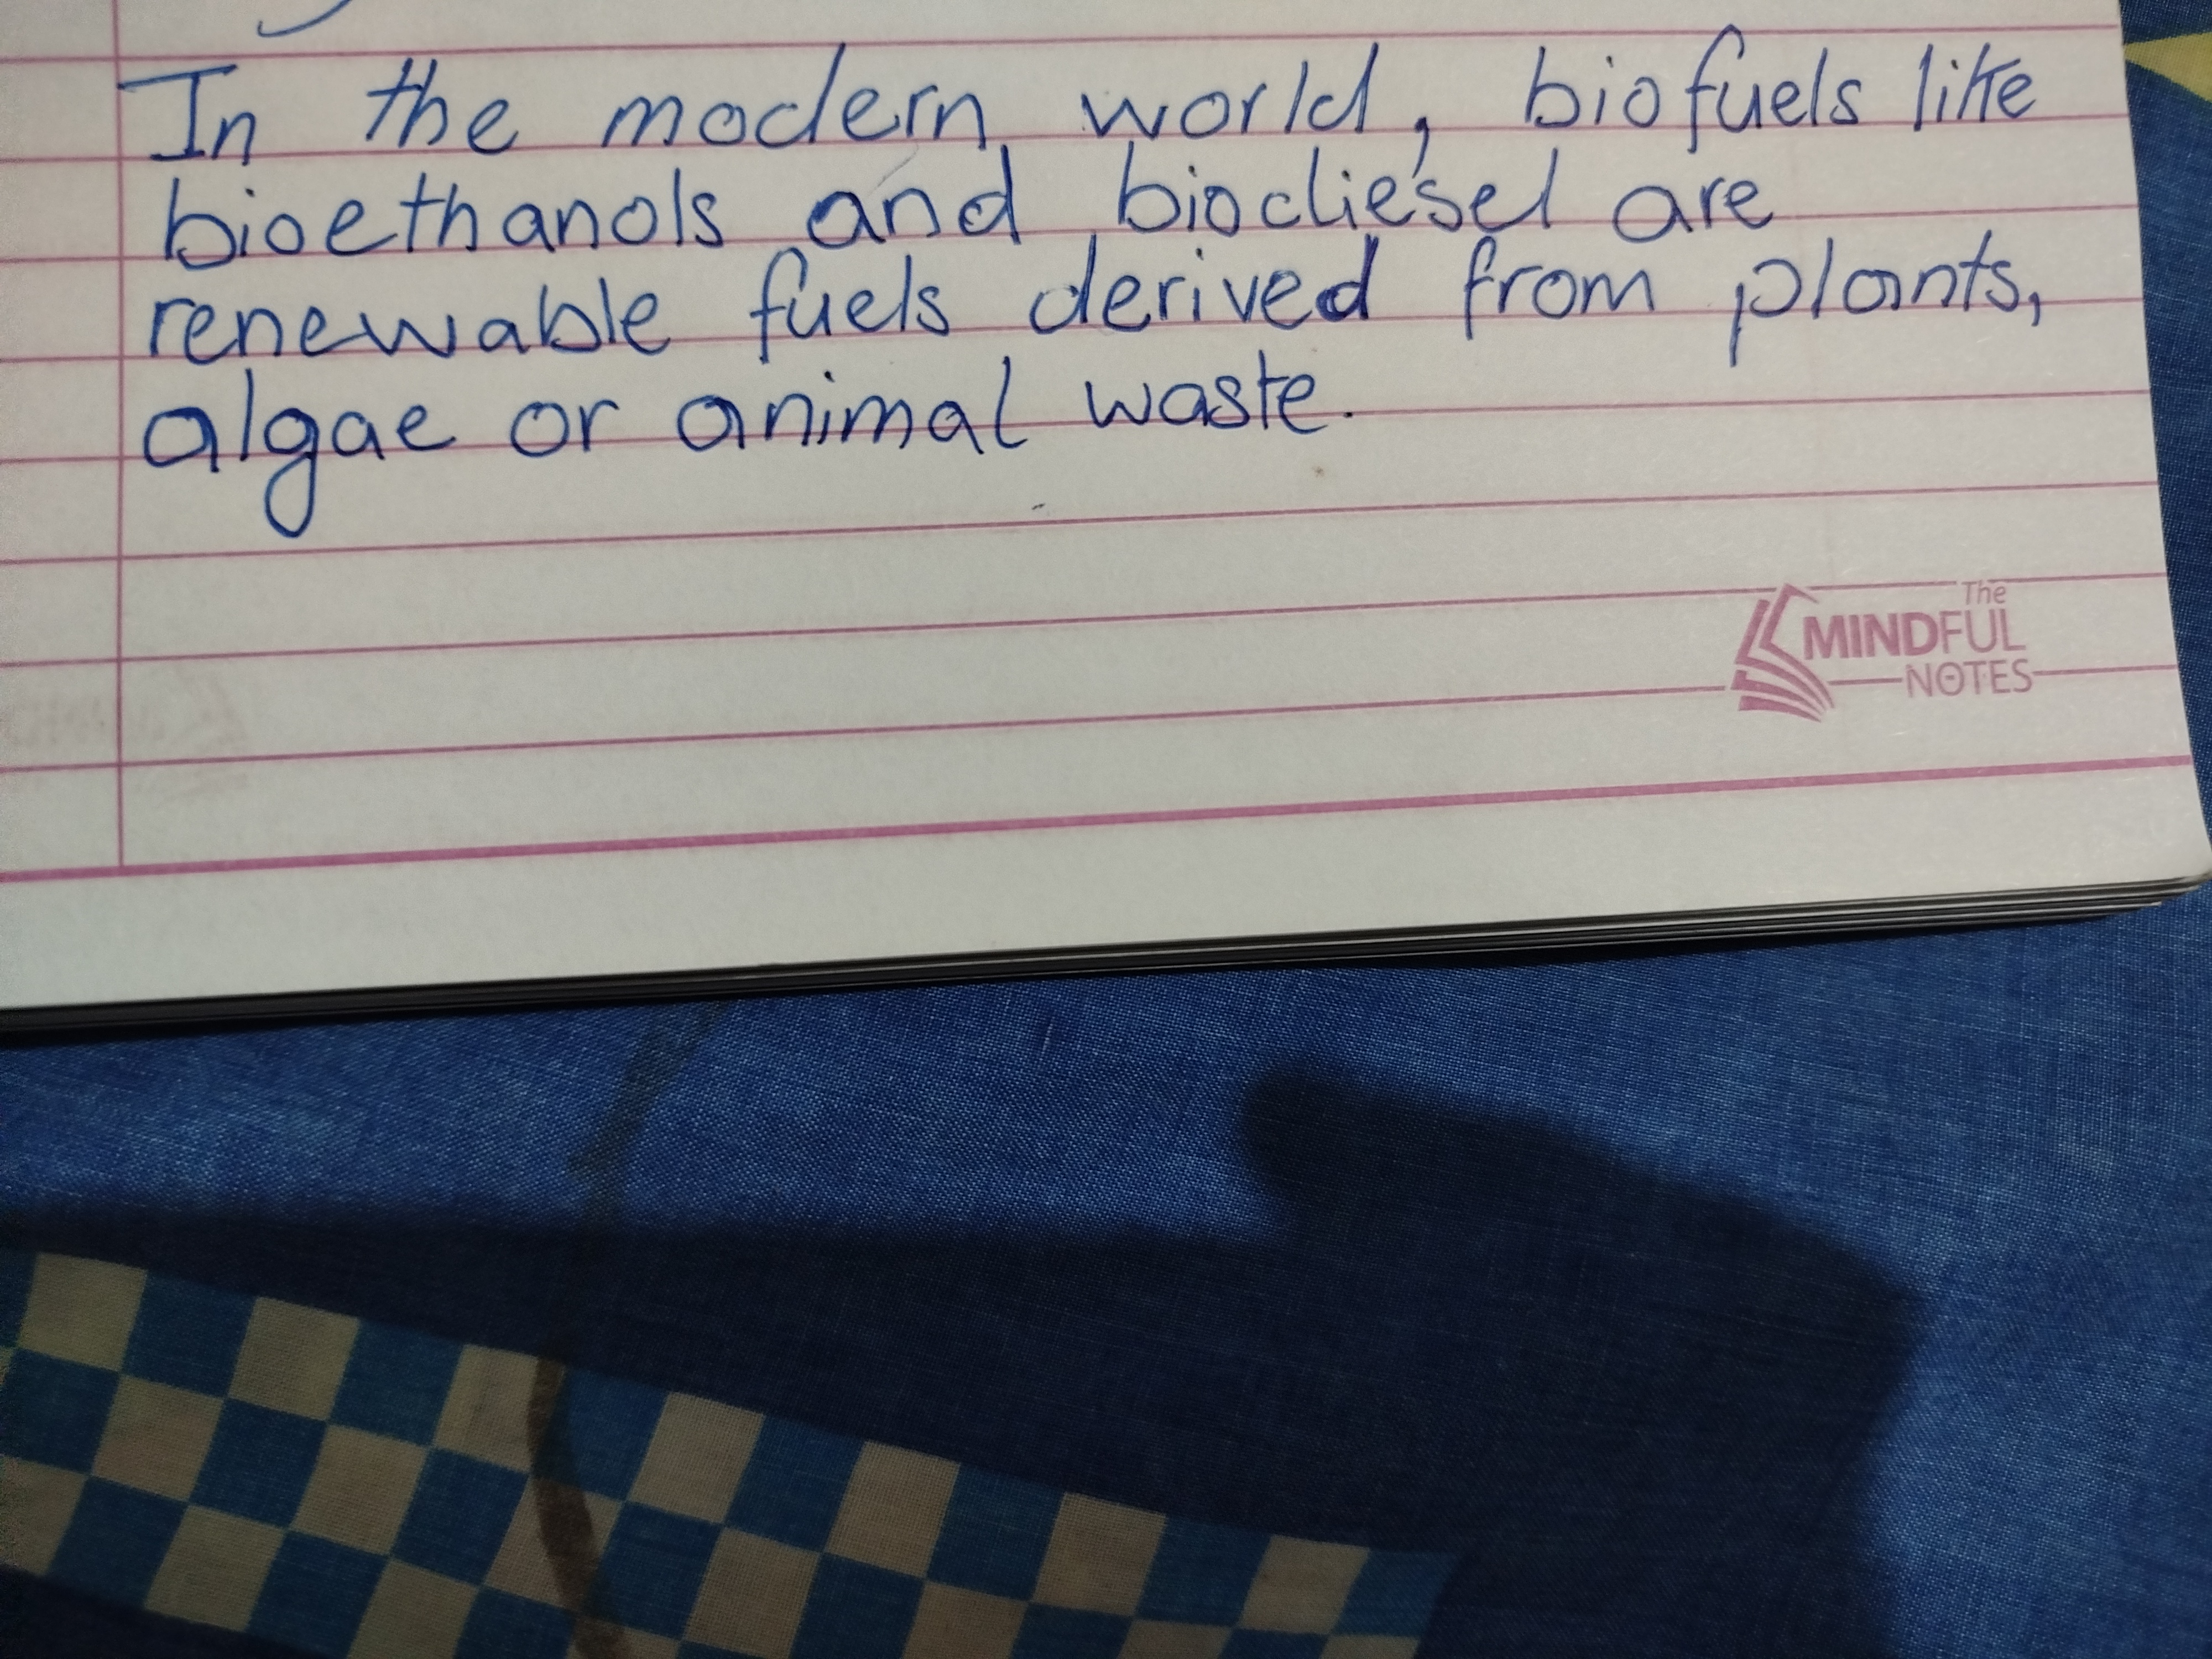 In the modern world, biofuels like
bioethanols and biodiesel are
renewable fuels derived from plants,
algae or animal waste.
The
MINDFUL
NOTES